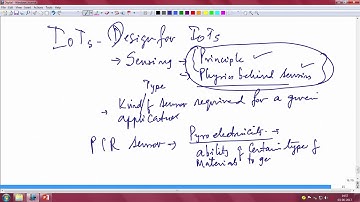 IoTs - Design for IoTs
→ Sensing → Principle ✓
Physics behind sensing ✓
Type
Kind of sensor required for a given
application
PIR sensor → Pyroelectricity →
ability of Certain type of
Materials to ge